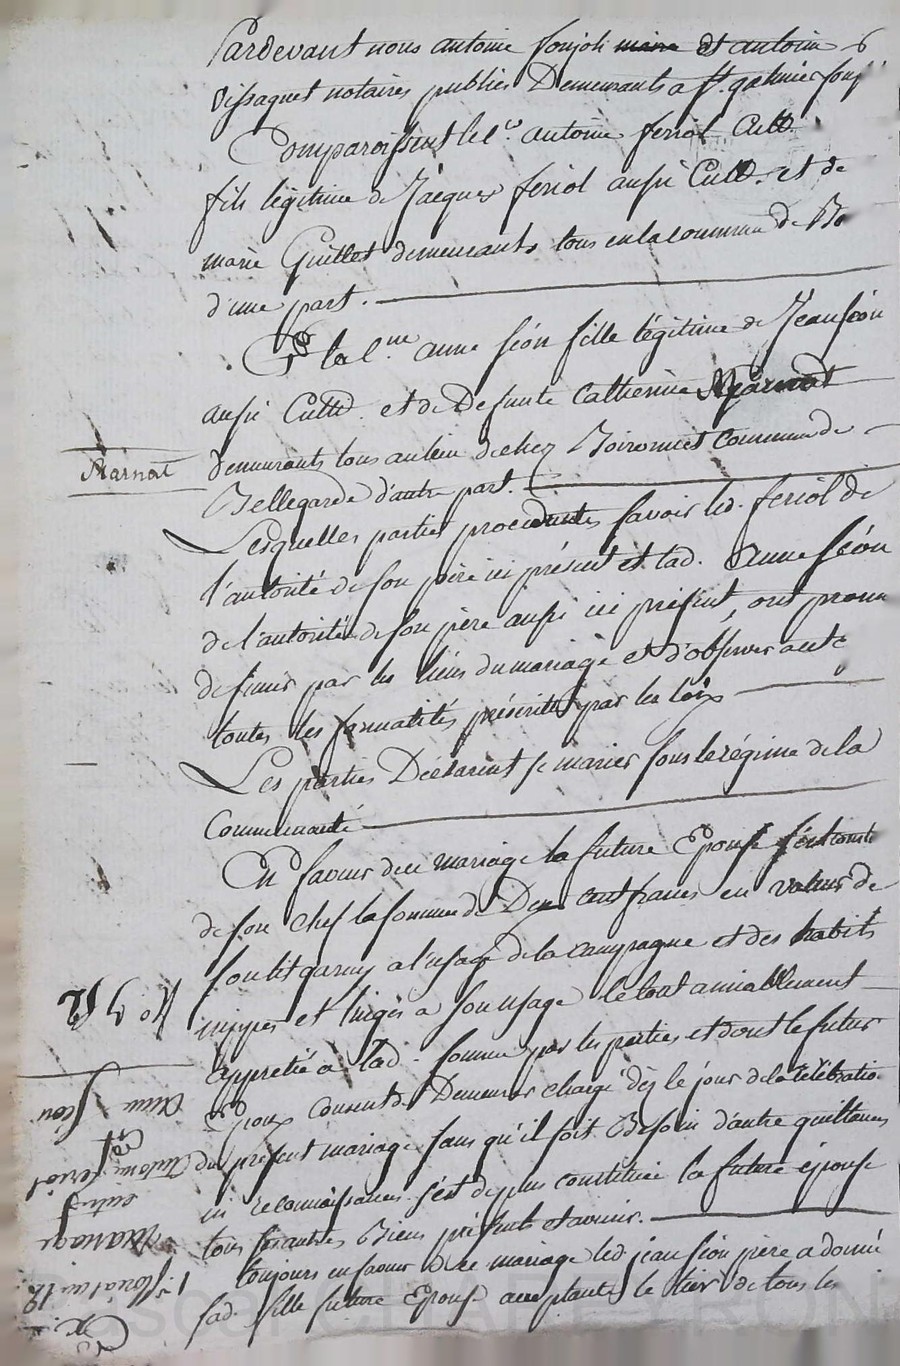 Pardevant nous antoine fonjoli maire et antoine
Vissaguet notaires publics Demeurants a st. galmier sous
Comparoissent le Cn. antoine feriol Cultr.
fils légitime de Jacques feriol aussi Cultr. et de
marie Guillet demeurants tous en la commune de
d'une part.
Et la Cne. anne séon fille légitime de Jean séon
aussi Cultr. et de Defunte Catherine Marnat
demeurants tous au lieu de chez Boironnet Commune de
Bellegarde d'autre part.
Marnat
Lesquelles parties procedantes savoir led. feriol de
l'autorité de son père ici présent et lad. anne séon
de l'autorité de son père aussi ici présent, ont promis
de s'unir par les liens du mariage et d'observer
toutes les formalités préscrittes par les loix
Les parties Déclarent se marier sous le régime de la
Communauté
En faveur dece mariage la future Epouse s'est constituée
de son chef la somme de Deux cent francs en valeur de
son lit garny a l'usage de la campagne et des habits
nippes et linges a son usage le tout amiablement
appretié a lad. somme par les parties et dont le futur
Epoux consent de Demeurer chargé dès le jour de la célébration
du présent mariage sans qu'il soit Besoin d'autre quittance
ni reconnoissance. s'est de plus constituée la future épouse
tous ses autres Biens présents et avenir.
toujours en faveur de ce mariage led. jean séon père a donné
a sad. fille future Epouse acceptante le tiers de tous les
No 952
1er floréal an 12
Mariage
entre
Antoine feriol
Et
anne Séon